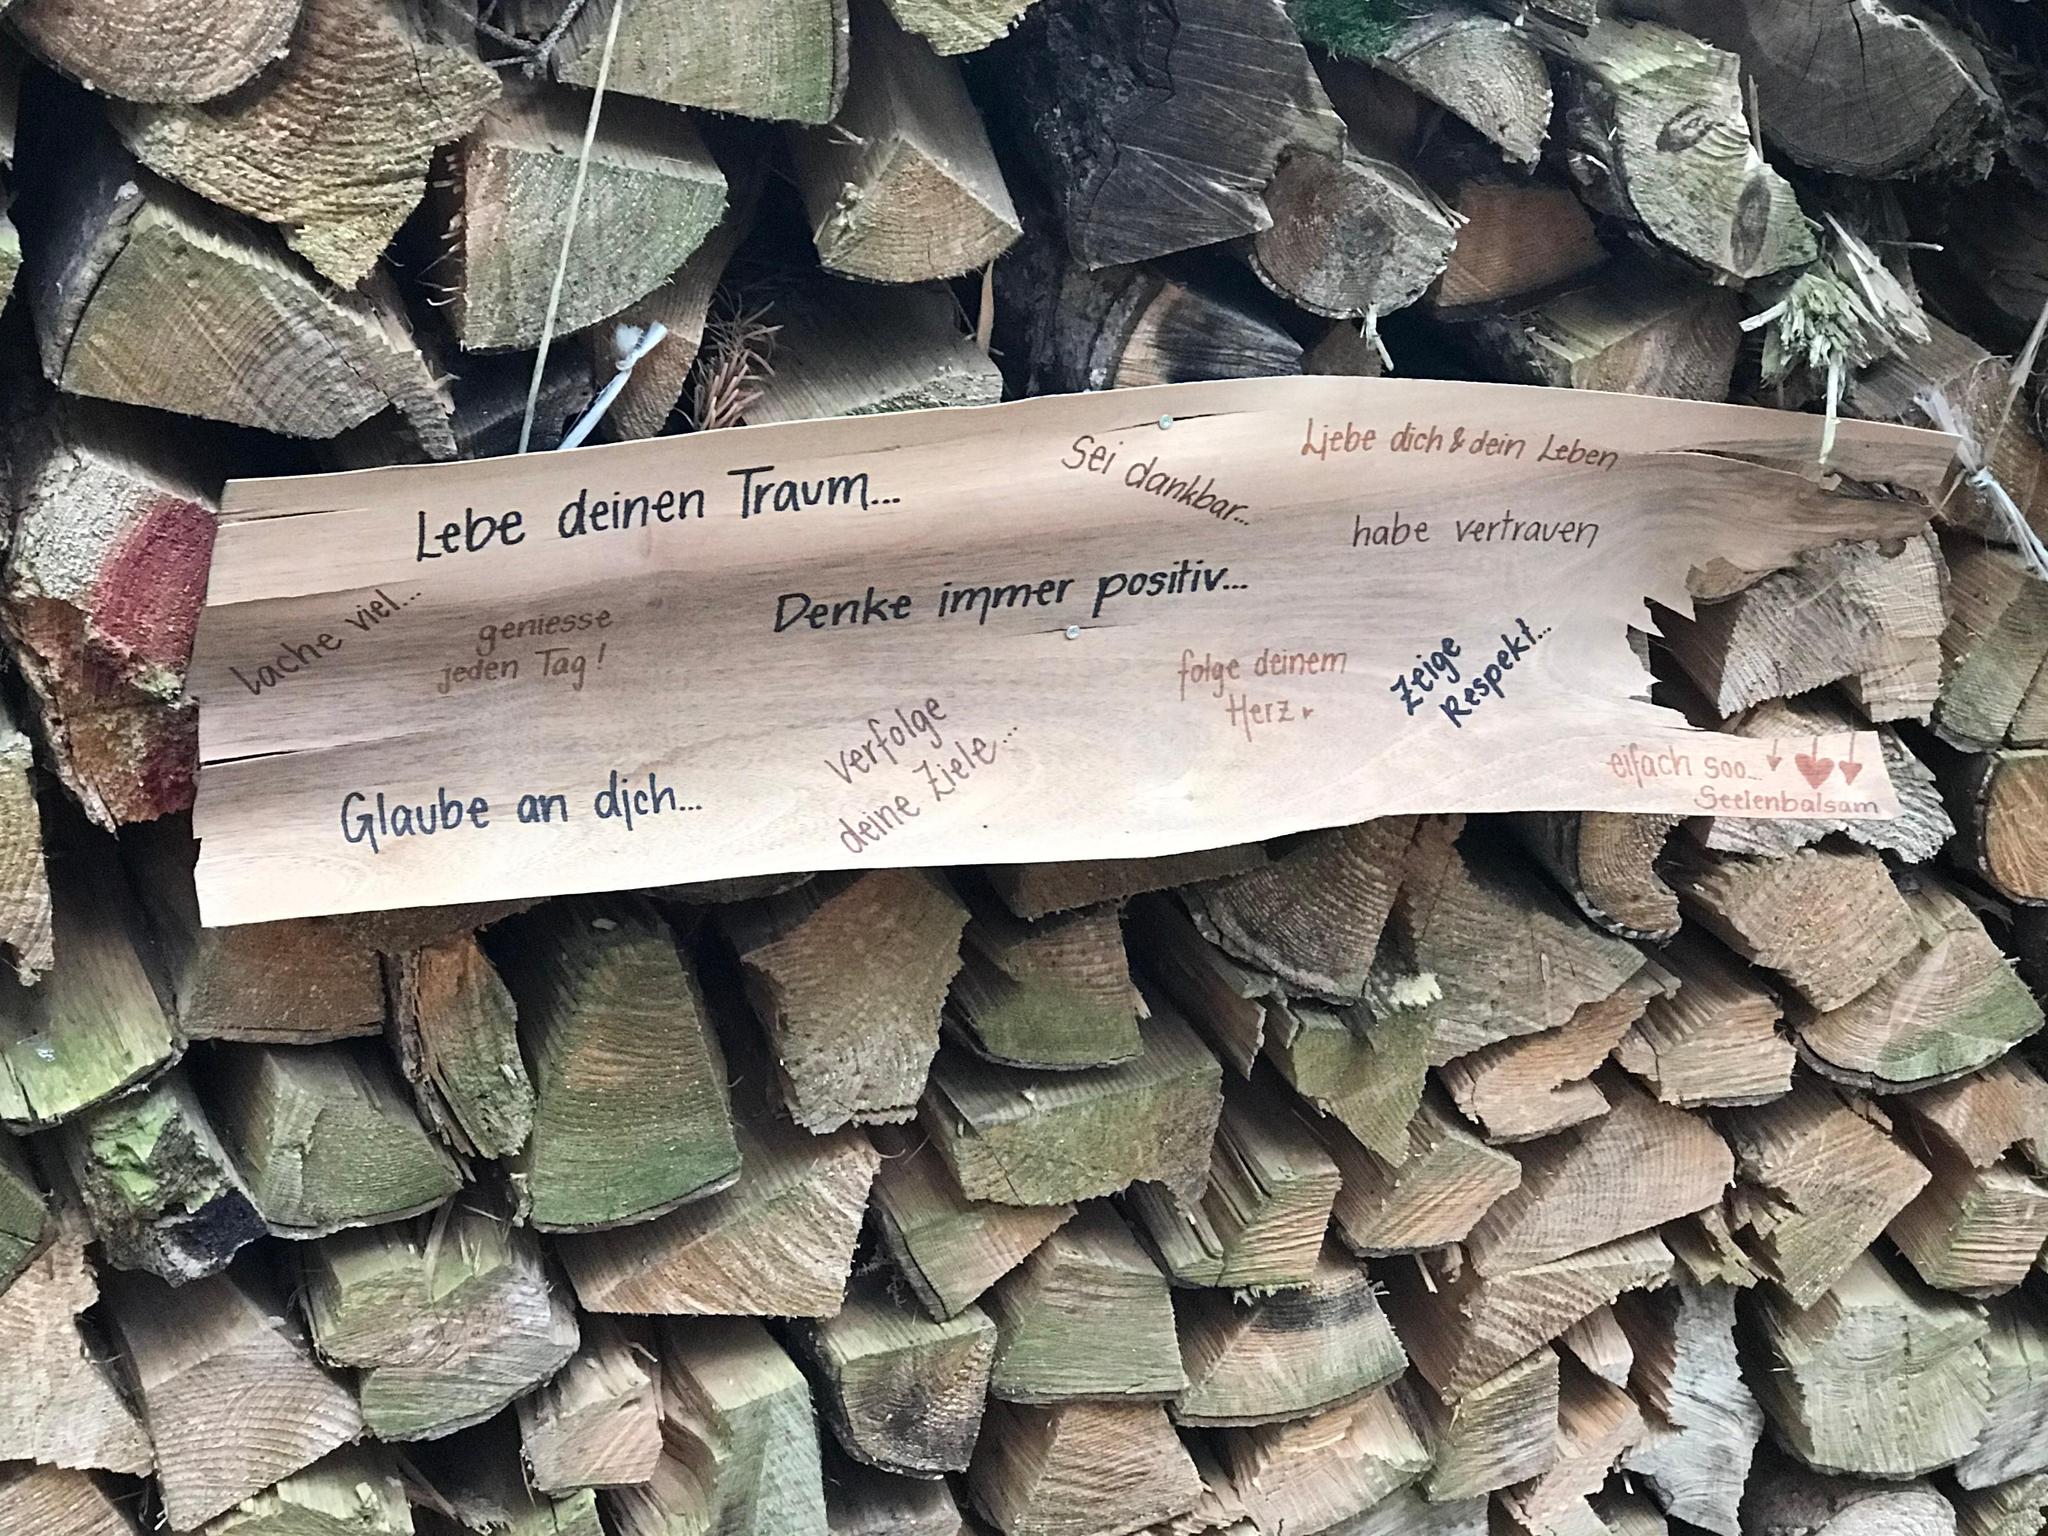 Lebe deinen Traum...
Sei dankbar...
Liebe dich & dein Leben
habe vertrauen
Denke immer positiv...
lache viel...
geniesse
jeden Tag!
folge deinem
Herz
Zeige
Respekt...
verfolge
deine Ziele...
Glaube an dich...
eifach soo...
Seelenbalsam